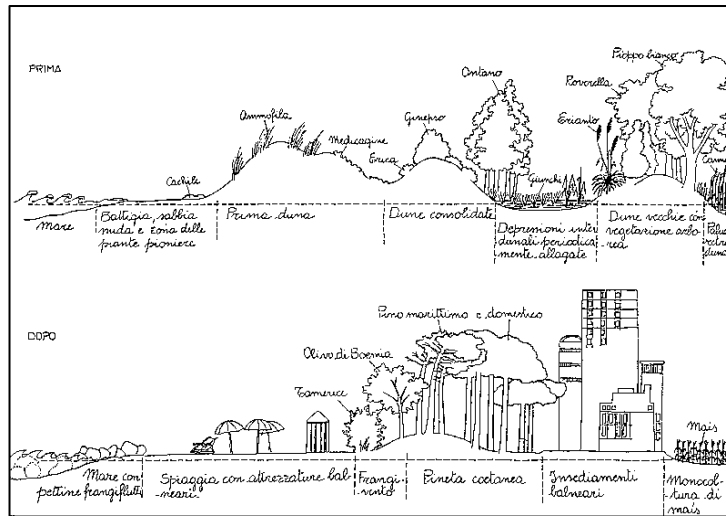 PRIMA
Ammofila
Medicagine
Cachili
Erica
Ginepro
Ontano
Giunchi
Erianto
Roverella
Pioppo bianco
Mare
Battigia, sabbia
nuda e zona delle
piante pioniere
Prima duna
Dune consolidate
Depressioni inter
dunali periodica
mente allagate
Dune vecchie con
vegetazione arbo
-rea
DOPO
Tamerice
Olivo di Boemia
Pino marittimo e domestico
Mais
Mare con
pettine frangiflutti
Spiaggia con attrezzature bal-
neari
Frangi-
vento
Pineta coetanea
Insediamenti
balneari
Monocol-
tura di
mais